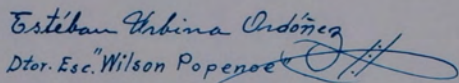 Estéban Urbina Ordóñez
Dtor. Esc. "Wilson Popenoe"